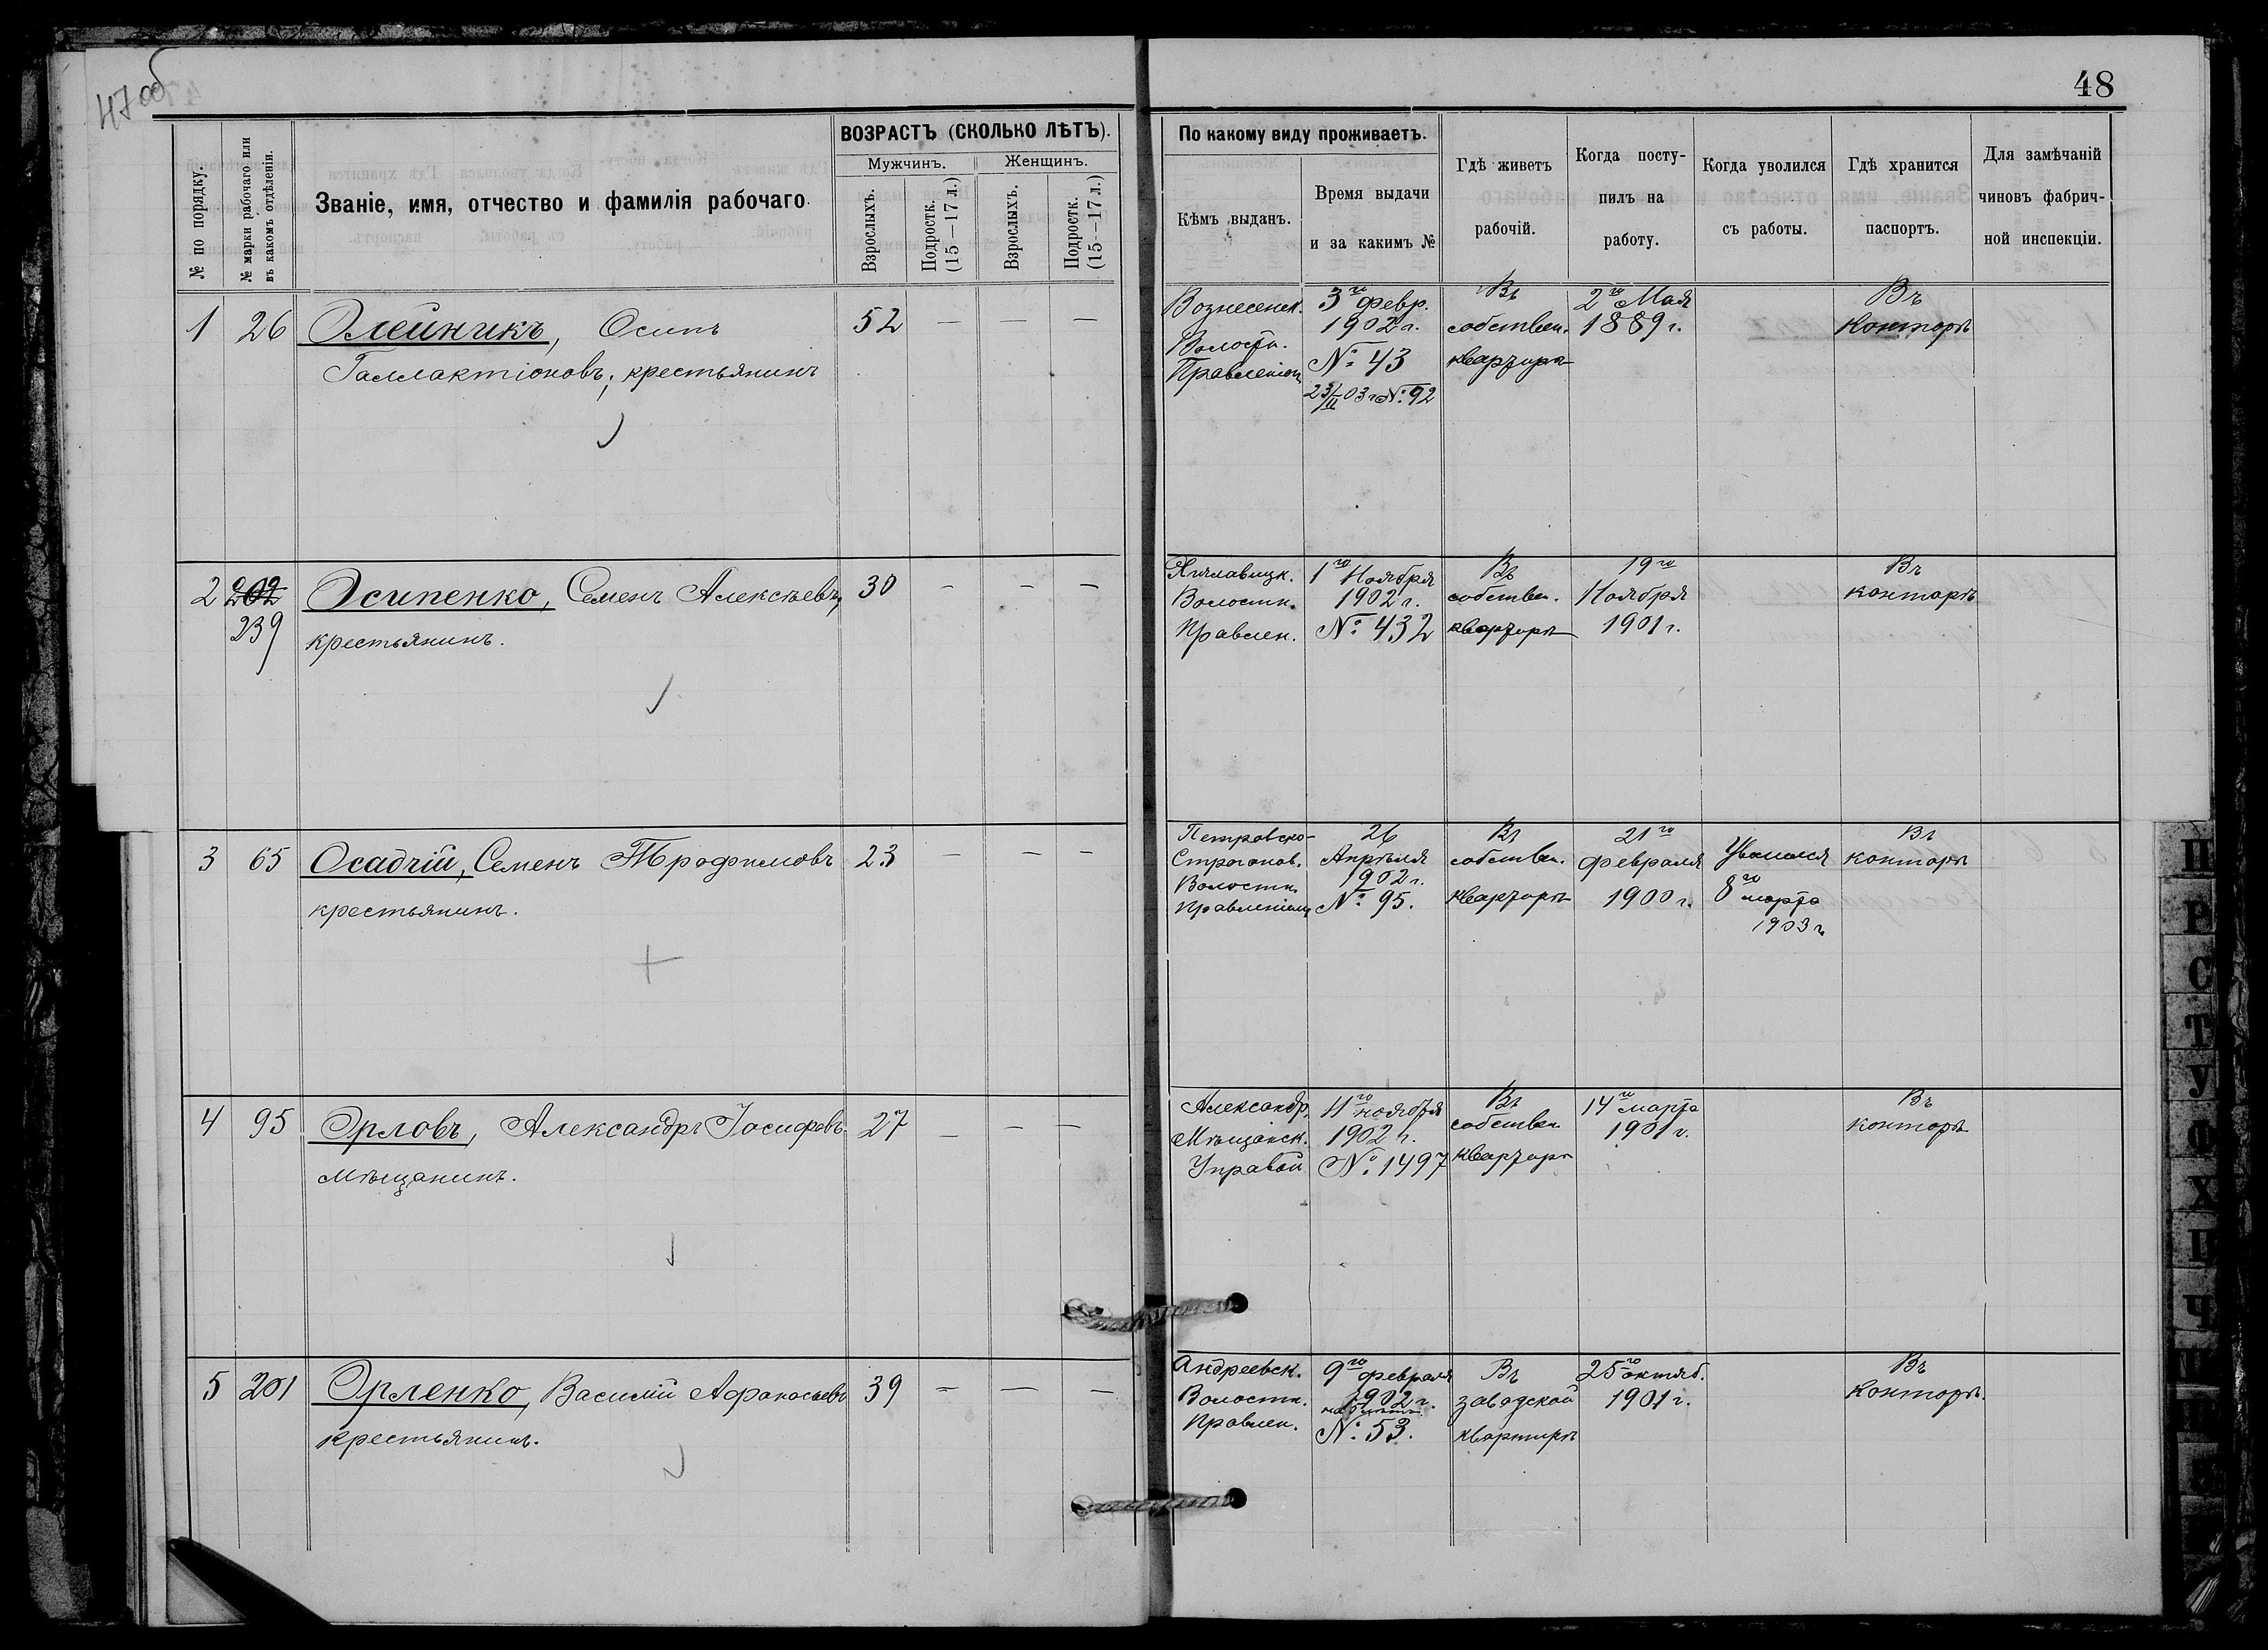 47 об
48
№ по порядку.
№ марки рабочаго или
въ какомъ отдѣленіи.
Званіе, имя, отчество и фамилія рабочаго.
ВОЗРАСТЪ (СКОЛЬКО ЛѢТЪ).
Мужчинъ. Женщинъ.
Взрослыхъ.
Подростк.
(15—17 л.)
Взрослыхъ.
Подростк.
(15—17 л.)
По какому виду проживаетъ.
Кѣмъ выданъ.
Время выдачи
и за какимъ №
Гдѣ живетъ
рабочій.
Когда посту-
пилъ на
работу.
Когда уволился
съ работы.
Гдѣ хранится
паспортъ.
Для замѣчаній
чиновъ фабрич-
ной инспекціи.
1 26 Олейникъ, Осипъ 52 — — —
Галлактіоновъ, крестьянинъ
Вознесенск.
Волостн.
Правленіем
3го Февр.
1902 г.
№ 43
23/II 03 г № 92
Въ
собствен.
квартирѣ
2го Мая
1889 г.
Въ
Конторѣ
2 202 Осипенко, Семенъ Алексѣевъ, 30 — — —
239 крестьянинъ.
Хиславицк.
Волостн.
Правлен.
1го Ноября
1902 г.
№ 432
Въ
собствен.
квартирѣ
19го
Ноября
1901 г.
Въ
конторѣ
3 65 Осадчій, Семенъ Трофимовъ 23 — — —
крестьянинъ.
Петровско-
Строганов.
Волостн.
Правленіемъ
26
Апрѣля
1902 г.
№ 95.
Въ
собствен.
квартирѣ
21го
февраля
1900 г.
Уволился
8го
марта
1903 г
Въ
конторѣ
4 95 Орловъ, Александръ Іосифовъ 27 — — —
мѣщанинъ.
Александр.
Мѣщанск.
Управой
4го ноября
1902 г.
№ 1497
Въ
собствен
квартирѣ
14го марта
1901 г.
Въ
конторѣ
5 201 Орленко, Василій Афанасьевъ 39 — — —
крестьянинъ.
Андреевск.
Волостн.
Правлен.
9го февраля
1902 г.
№ 53.
Въ
заводской
квартирѣ
25го октяб.
1901 г.
Въ
Конторѣ.
П
Р
С
Т
У
Ф
Х
Ц
Ч